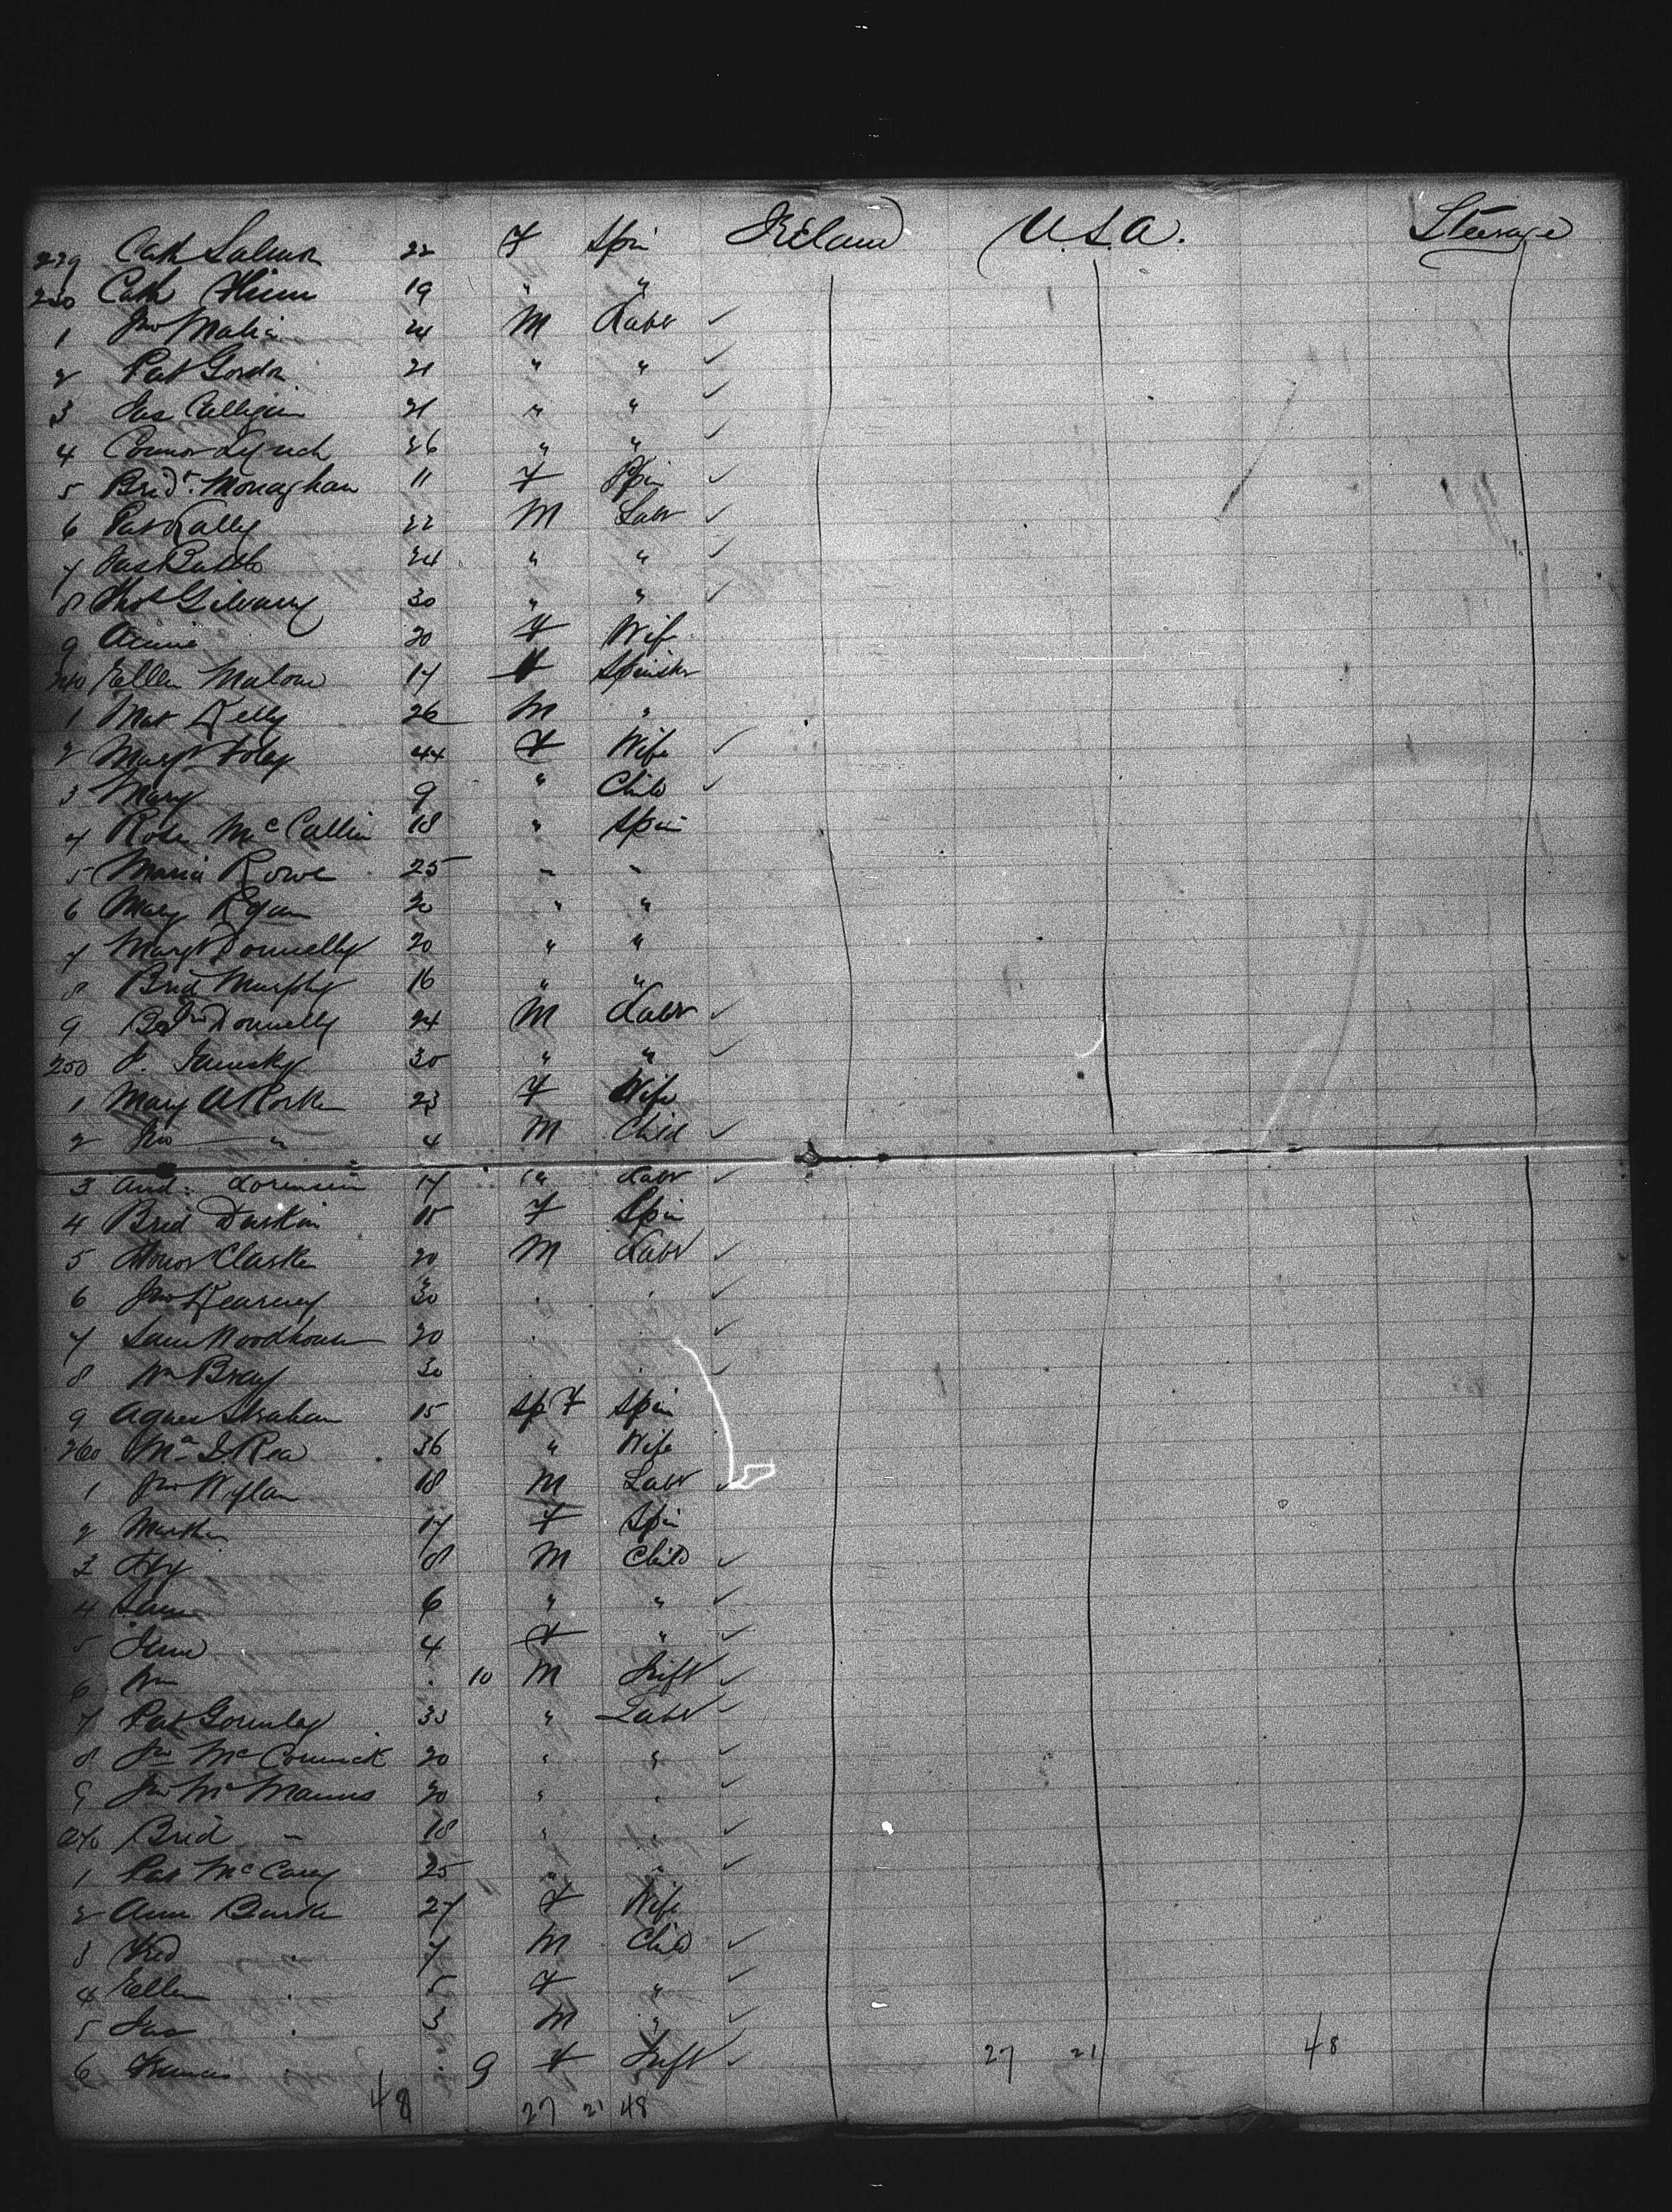 229 Cath Salmon 22 F Spin Ireland U.S.A. Steerage
230 Cath 19 " "
1 Jno 21 M Labr ✓
2 Pat Gordon 21 " " ✓
3 Jas 21 " " ✓
4 Connor Lynch 26 " " ✓
5 Bridt. Monaghan 11 F Spin ✓
6 Pat Lally 22 M Labr ✓
7 Jas 24 " " ✓
8 Thos 30 " " ✓
9 Annie 20 F Wife
240 Ellen Malone 17 F Spinster
1 Mat Kelly 26 M "
2 Margt Foley 44 F Wife ✓
3 Mary 9 " Child ✓
4 Rose McCallin 18 " Spin
5 Maria Rowe 25 - -
6 Mary Ryan 20 " "
7 Margt Donnelly 20 " "
8 Brid Murphy 16 " "
9 Donnelly 24 M Labr ✓
250 J. 30 " " ✓
1 Mary 23 F Wife
2 Jno " 4 M Child ✓
3 And. 17 " Labr ✓
4 Brid Durkin 15 F Spin
5 Clarke 20 M Labr ✓
6 Jno Kearney 30 . . ✓
7 Sam Woodhouse 20 . . ✓
8 Wm Bray 30 . . ✓
9 Agnes Strahan 15 Sp F Spin
260 Ma J. Rea 36 " Wife
1 Jno Wylan 18 M Labr ✓
2 Martha 17 F Spin
3 Hy 8 M Child ✓
4 6 " " ✓
5 Jane 4 F " ✓
6 Wm . 10 M Inft ✓
7 Pat Gormley 33 " Labr ✓
8 Jno McCormick 20 " " ✓
9 Jno McManus 20 " . ✓
270 Brid - 18 " . ✓
1 Pat McCarey 25 " " ✓
2 Ann Burke 27 F Wife
3 Fred . 7 M Child ✓
4 Ellen . 5 F " ✓
5 Jas . 3 M " ✓
6 Frances . 9 F Inft ✓ 27 21 48
48 27 21 48